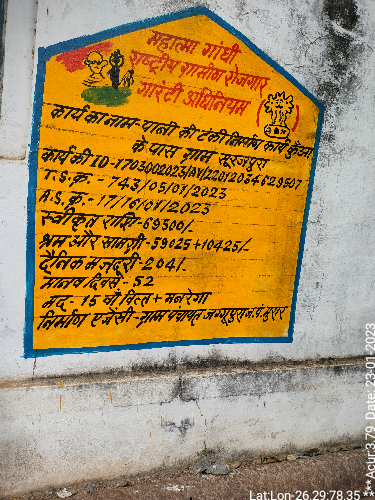 महात्मा गांधी
राष्ट्रीय ग्रामीण रोजगार
गारंटी अधिनियम
कार्य का नाम-पानी की टंकी निर्माण कार्य कुँआ
के पास ग्राम सूरजपुरा
कार्य की ID-1703002023/AV/22012034629507
T.S.क्र.- 743/05/01/2023
A.S.क्र.-17/16/01/2023
स्वीकृत राशि-69500/-
श्रम और सामग्री-59025+10425/-
दैनिक मजदूरी-204/-
मानव दिवस-52
मद- 15 वॉ वित्त+मनरेगा
निर्माण एजेंसी-ग्राम पंचायत जग्गूपुरा ज.पं.मुरार
Lat:Lon-26.29:78.35
***Acur:3.79 Date: 23-01-2023